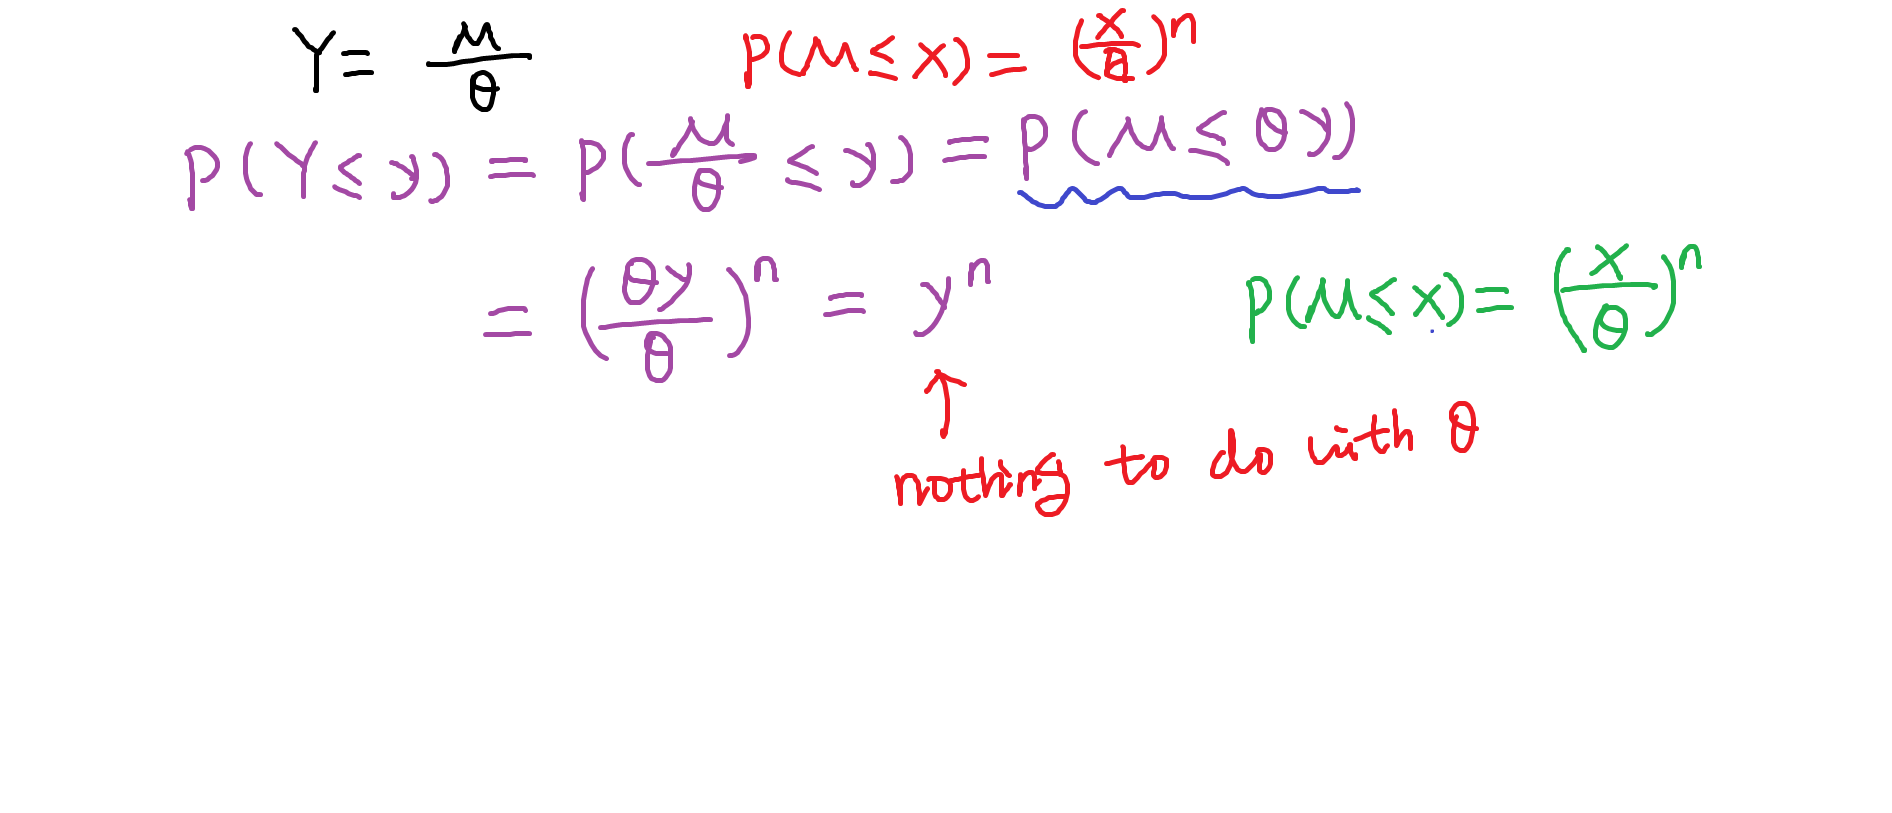 Y = M/θ P(M ≤ x) = (x/θ)^n
P(Y ≤ y) = P(M/θ ≤ y) = P(M ≤ θy)
= (θy/θ)^n = y^n P(M ≤ x) = (x/θ)^n
↑
nothing to do with θ